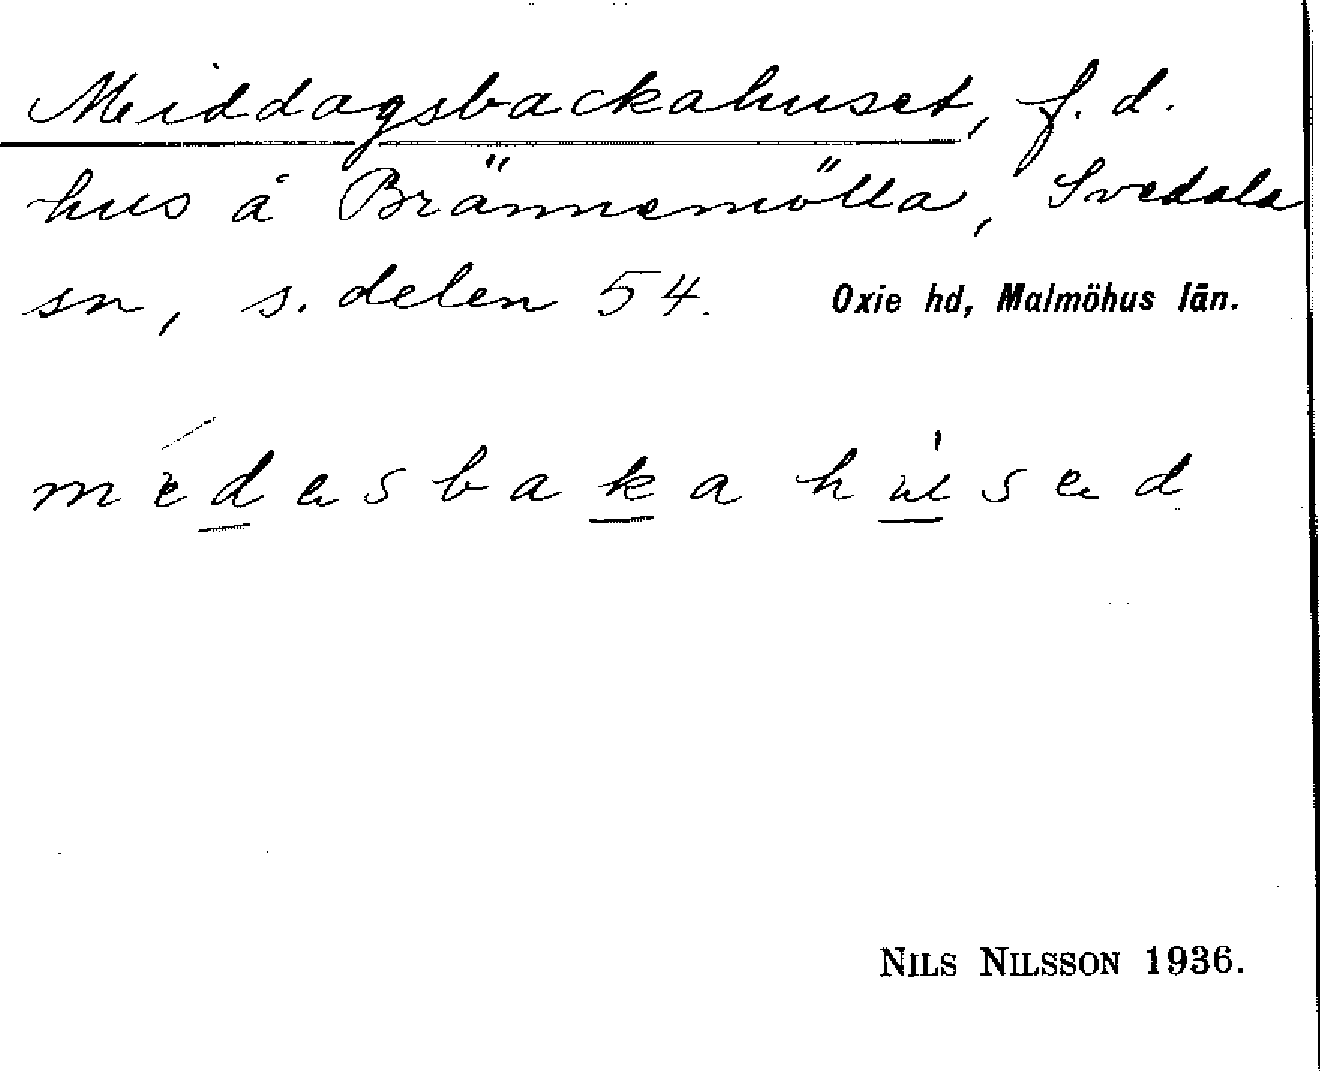 Middagsbackahuset, f.d.
hus å Brännemölla, Svedala
sn, s. delen 54. Oxie hd, Malmöhus län.
médasbakahúsad
NILS NILSSON 1936.